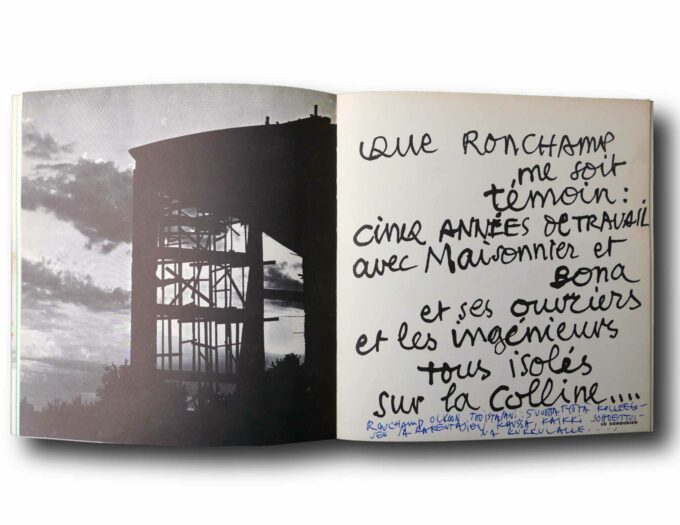 QUE RONCHAMP
me soit
témoin:
cinq ANNÉES DE TRAVAIL
avec Maisonnier et
Bona
et ses ouvriers
et les ingénieurs
tous isolés
sur la Colline....
RONCHAMP OLKOON TODISTAJANI: 5 VUOTTA TYÖTÄ KOLLEEGO-
JEN JA RAKENTAJIEN KANSSA, KAIKKI
NA KUKKULALLE....
LE CORBUSIER